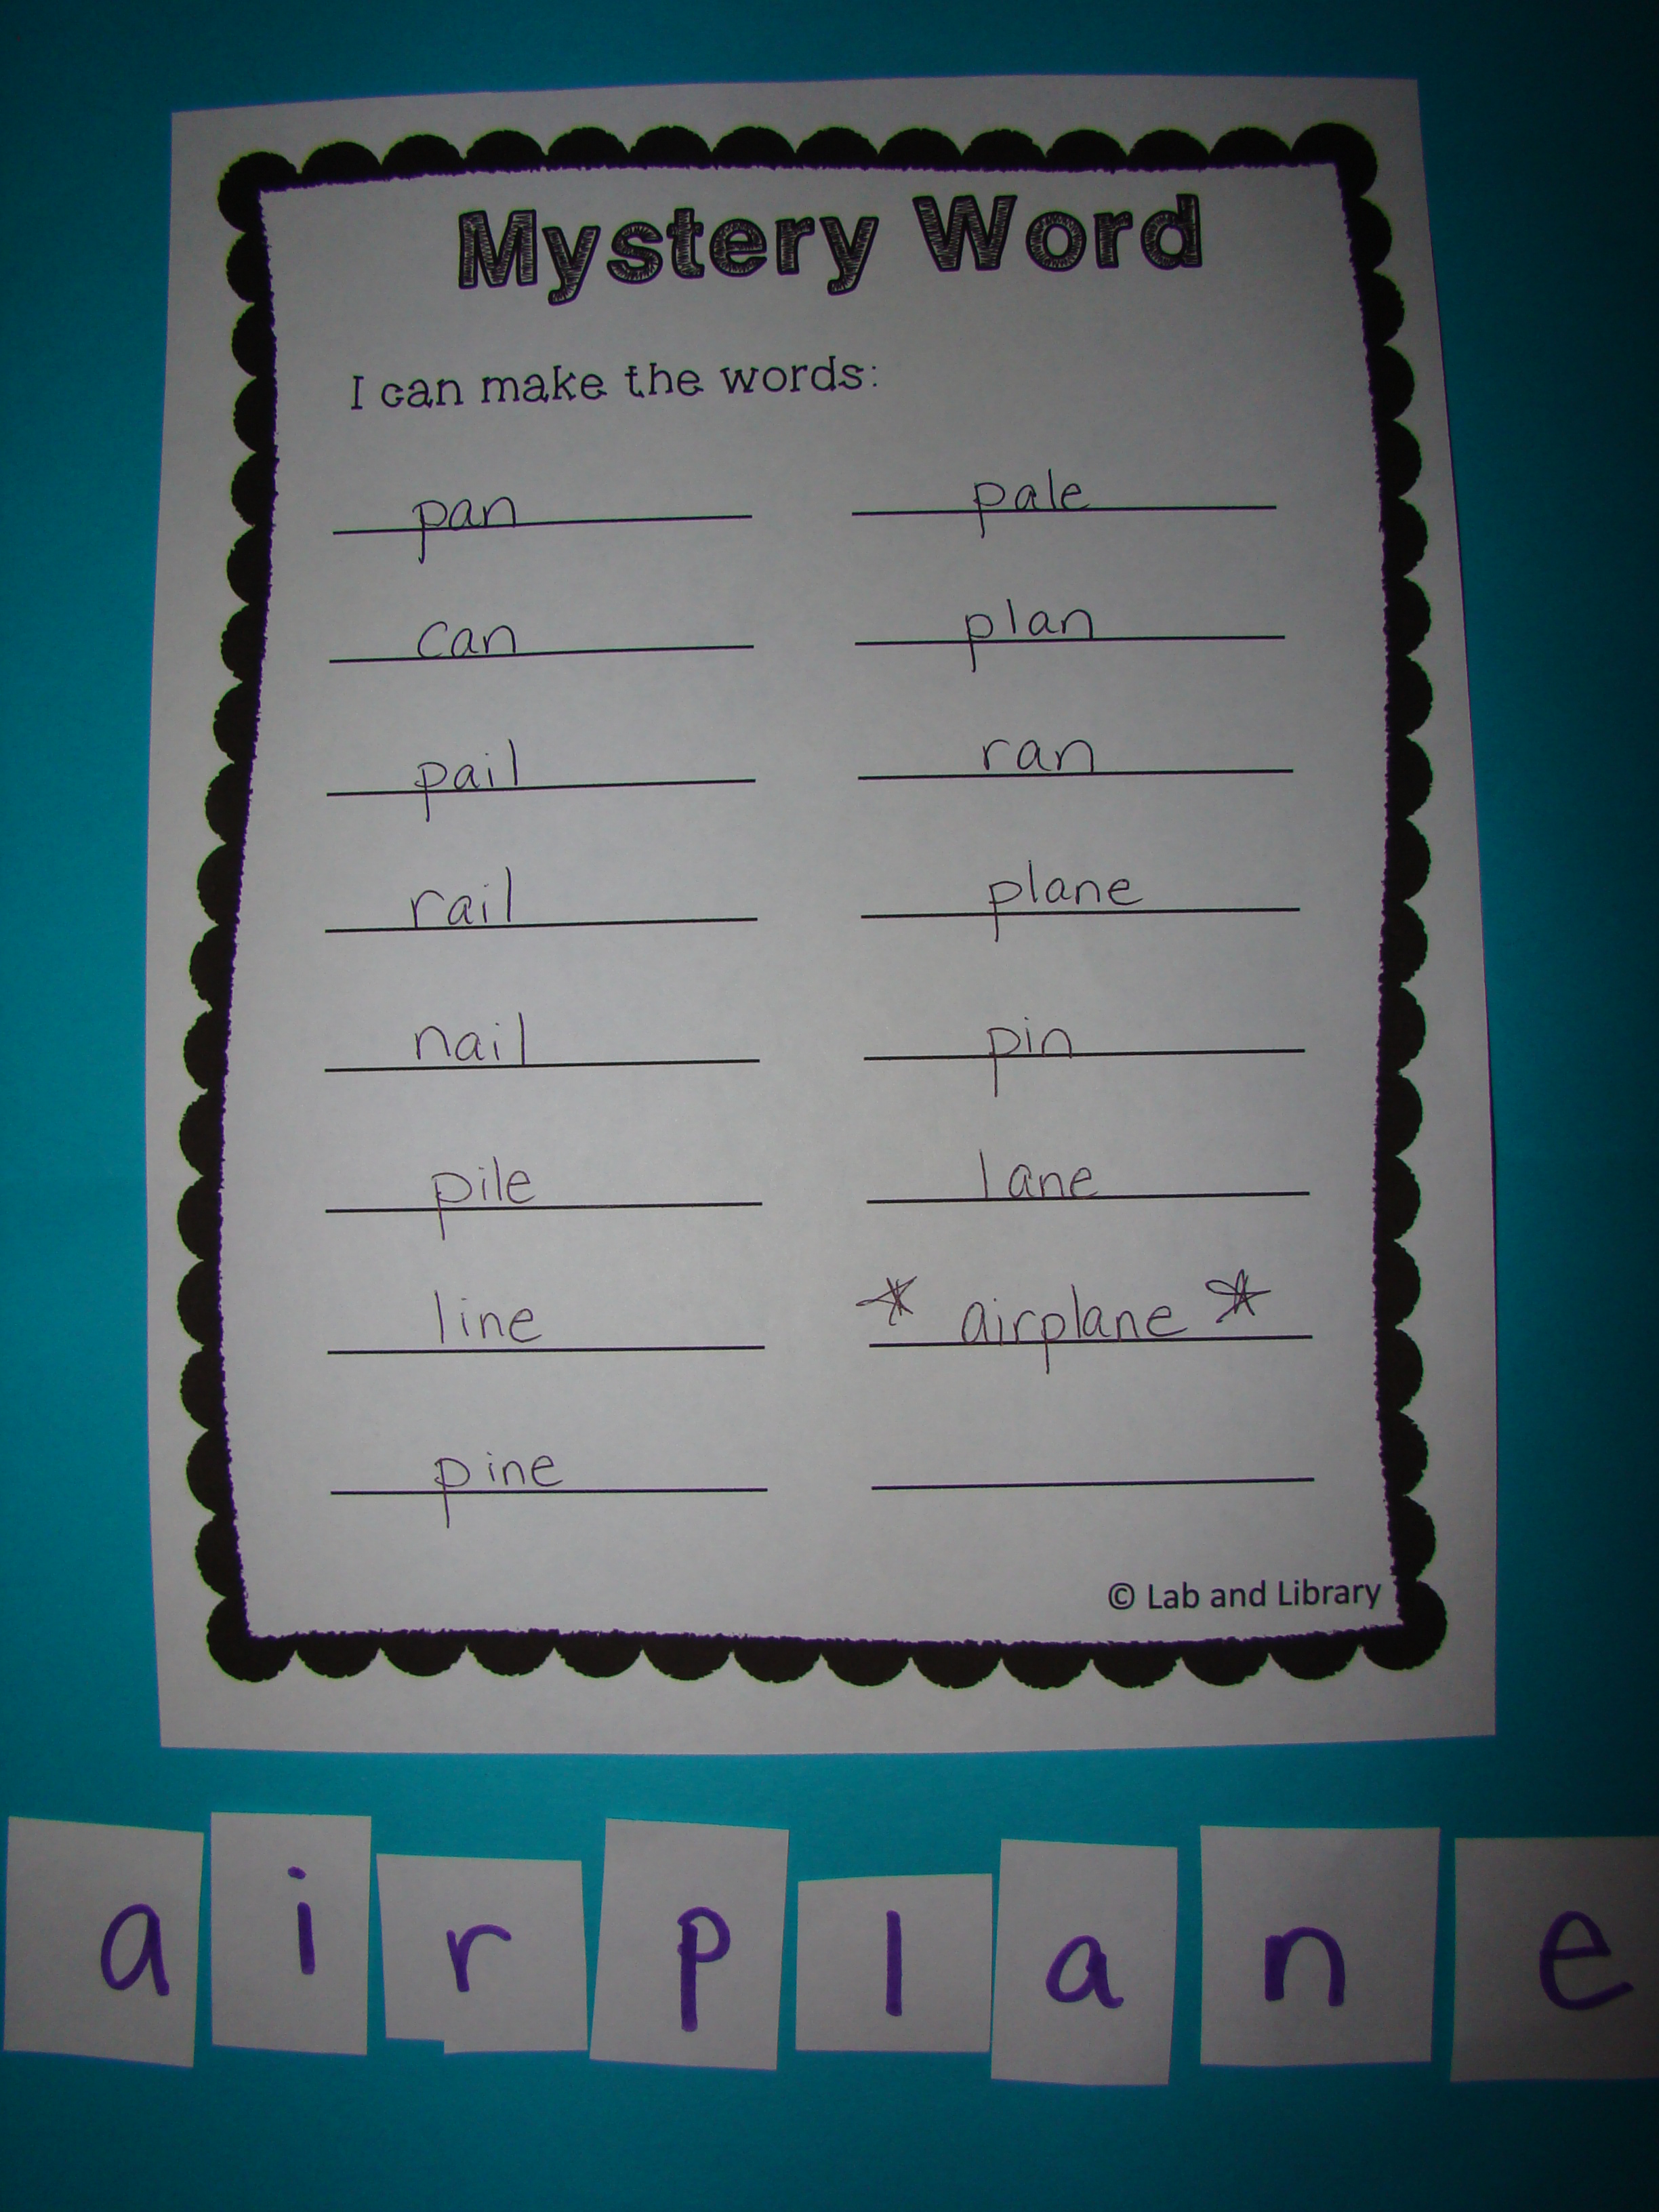 Mystery Word
I can make the words:
pan pale
can plan
pail ran
rail plane
nail pin
pile lane
line airplane
pine
© Lab and Library
a i r p l a n e